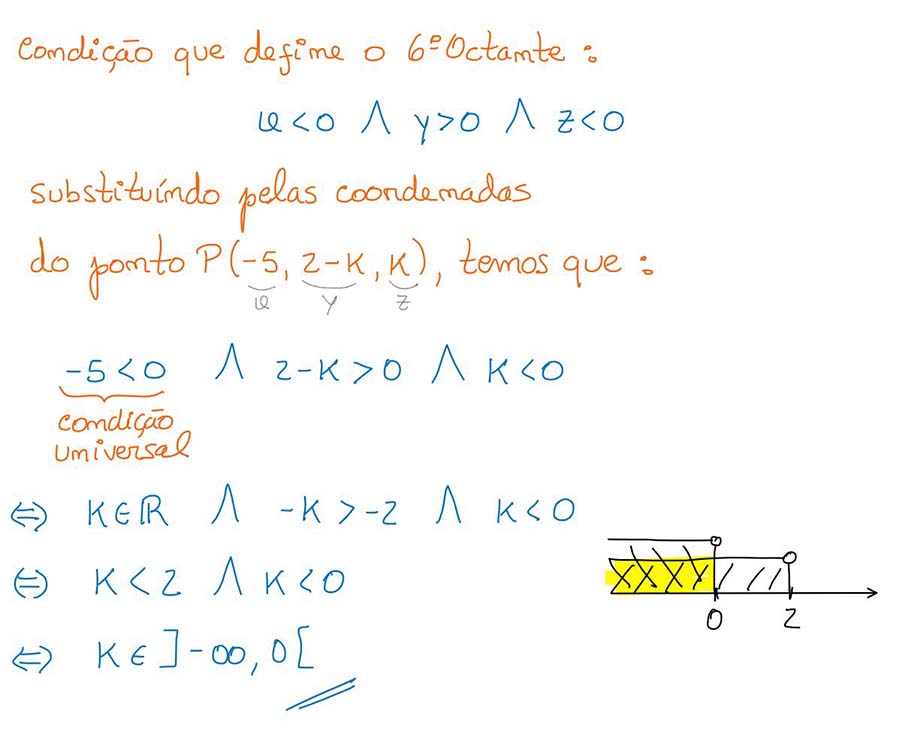 Condição que define o 6º Octante :
x<0 ∧ y>0 ∧ z<0
substituíndo pelas coordenadas
do ponto P(-5, 2-K, K), temos que :
x y z
-5<0 ∧ 2-K>0 ∧ K<0
condição
universal
⇔ K∈ℝ ∧ -K>-2 ∧ K<0
⇔ K<2 ∧ K<0
0 2
⇔ K∈]-∞,0[